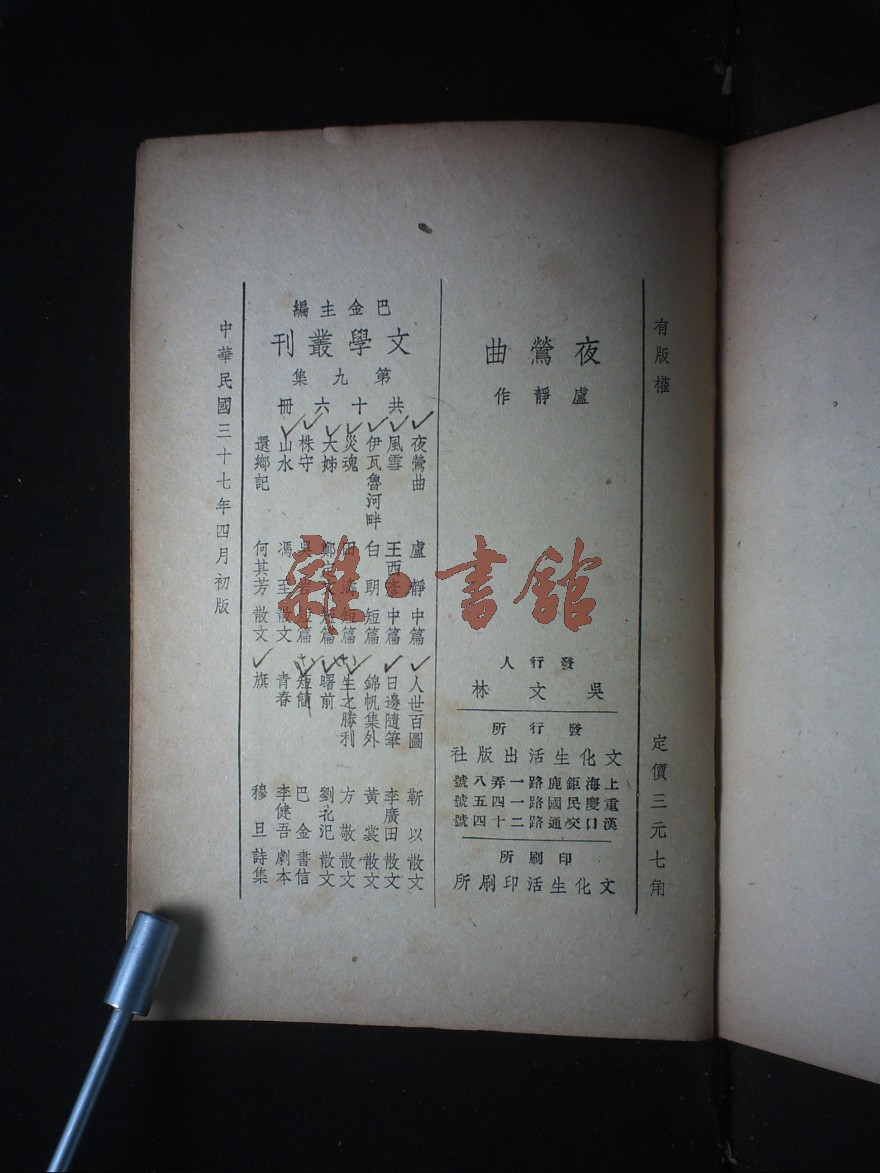 有版權
定價三元七角
夜鶯曲
盧靜作
發行人
吳文林
發行所
文化生活出版社
上海鉅鹿路一弄八號
重慶民國路一四五號
漢口交通路二十四號
印刷所
文化生活印刷所
巴金主編
文學叢刊
第九集
共十六冊
夜鶯曲 盧靜 中篇
風雪 王西 中篇
伊瓦魯河畔 白朗 短篇
災魂 田濤 短篇
大姊 鄭定文 短篇
株守 吳岩 短篇
山水 馮至 散文
還鄉記 何其芳 散文
人世百圖 靳以 散文
日邊隨筆 李廣田 散文
錦帆集外 黃裳 散文
生之勝利 方敬 散文
曙前 劉北汜 散文
短簡 巴金 書信
青春 李健吾 劇本
旗 穆旦 詩集
中華民國三十七年四月初版
雜·書館